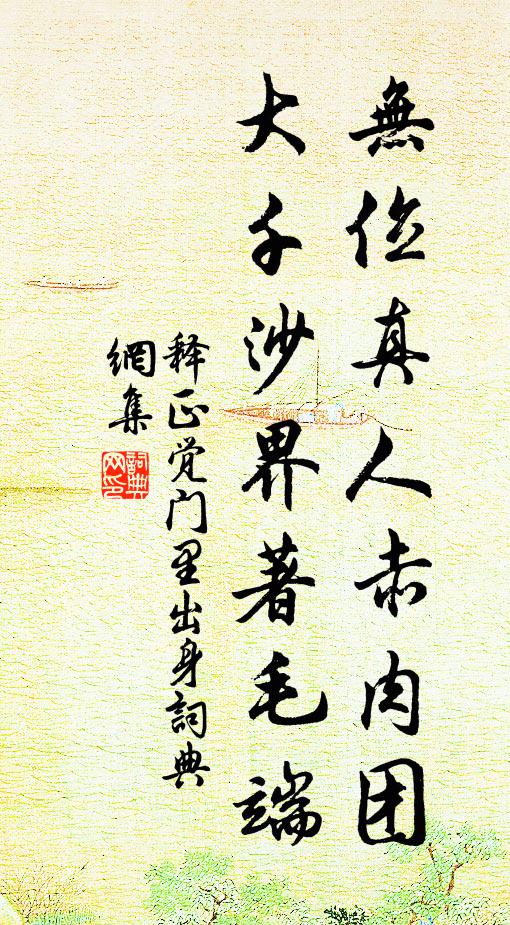 無位真人赤肉团
大千沙界著毛端
释正觉门里出身詞典
網集
詞典
网印